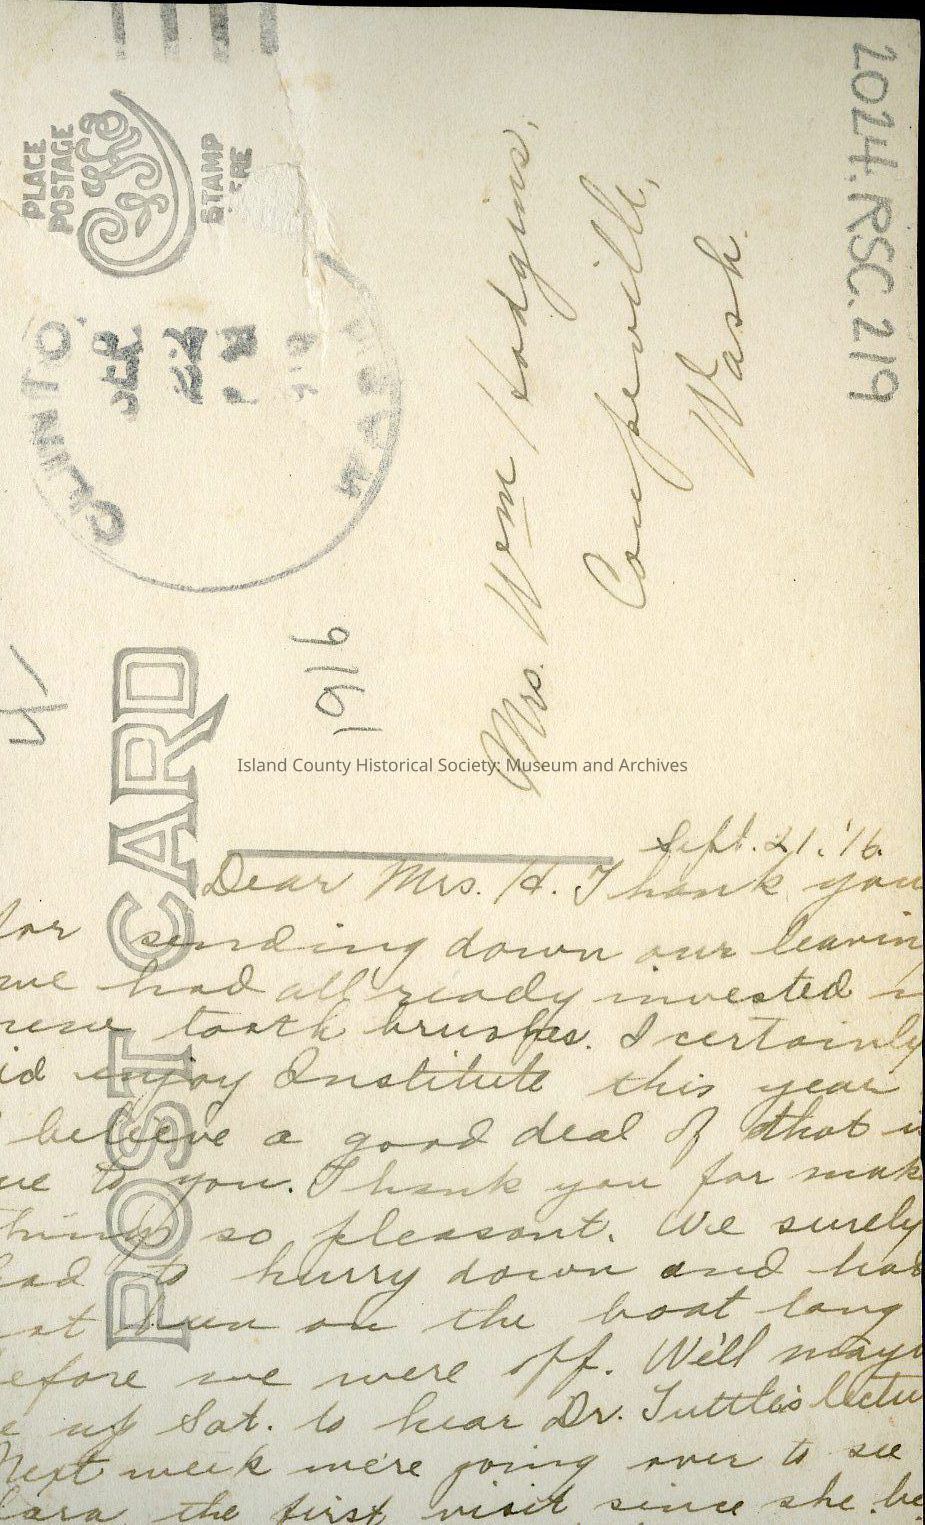 2024.RSC.219
PLACE
POSTAGE
STAMP
HERE
CLINTON
WASH
POST CARD
1916
Mrs. Wm Hodgins,
Coupeville,
Wash.
Island County Historical Society: Museum and Archives
Sept. 21. '16.
Dear Mrs. H. Thank you
for sending down our leavin
we had all ready invested
new tooth brushes. I certainly
id enjoy Institute this year
believe a good deal of that
ue to you. Thank you for mak
things so pleasant. We surely
had to hurry down and had
on the boat long
efore we were off. We'll mayb
e up Sat. to hear Dr. Tuttle's lectu
Next week we're going over to see
lara the first visit since she be